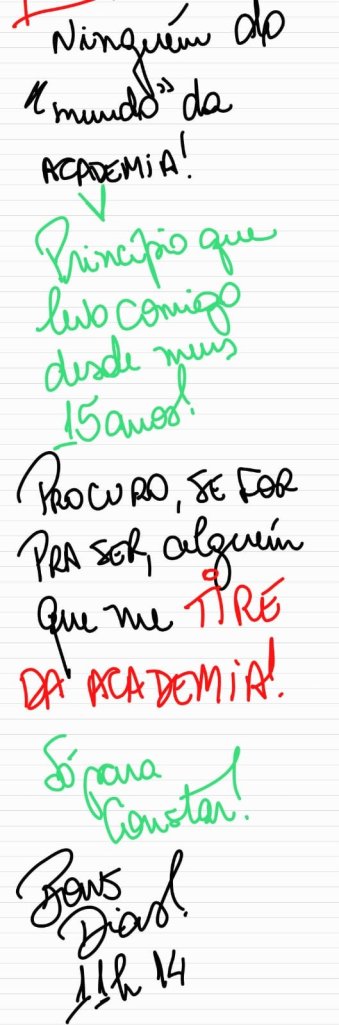 Ninguém do
"mundo" da
ACADEMIA!
Princípio que
levo comigo
desde meus
15 anos!
PROCURO, SE FOR
PRA SER, alguém
que me TIRE
DA ACADEMIA!
Só para
Constar!
Bons
Dias!
11h14